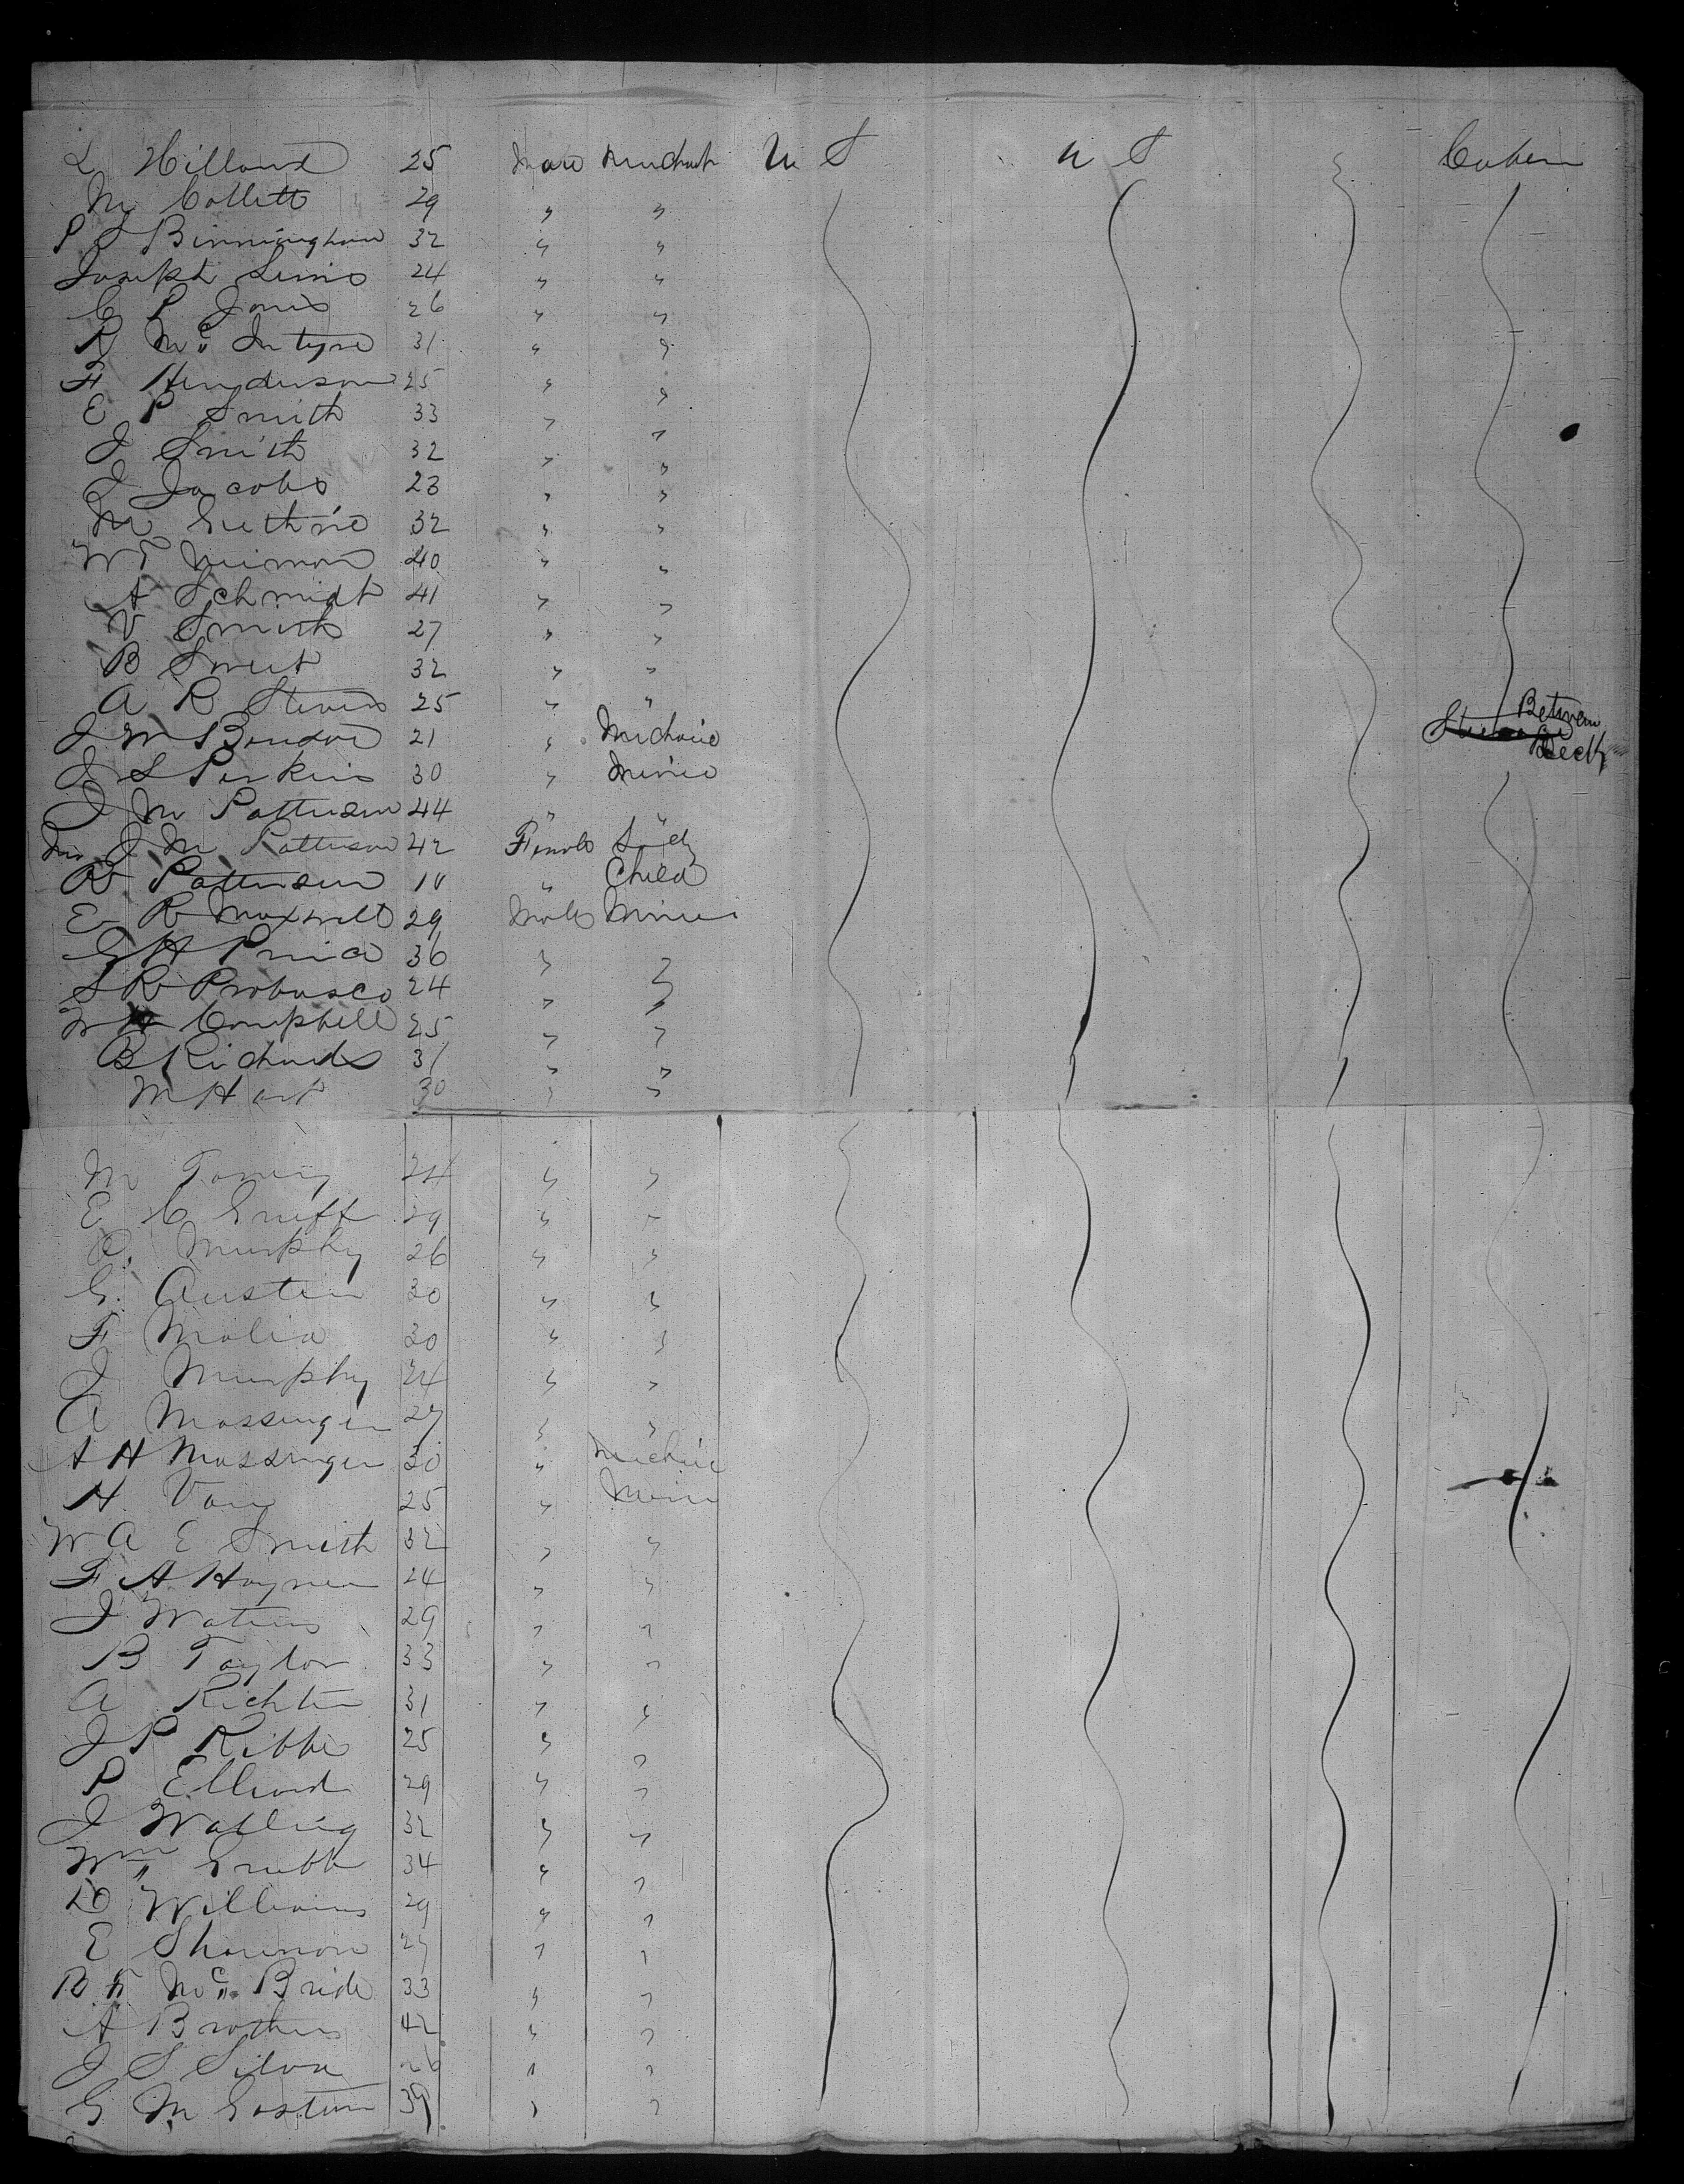 L Hilland 25 Male Merchant U S U S Cabin
M Collett 29 " "
P S Birmingham 32 " "
Joseph Lewis 24 " "
C P Jones 26 " "
R Mc Intyre 31 " "
F Henderson 25 " "
E P Smith 33 " "
J Smith 32 " "
L Jacobs 23 " "
M Guthrie 32 " "
W T 40 " "
A Schmidt 41 " "
V Smith 27 " "
B Smeet 32 " "
A R Stevens 25 " "
J W 21 " Mechanic Between Deck
J S Perkins 30 " Miner
J M Patterson 44 " "
Mrs J M Patterson 42 Female Lady
R Patterson 10 " Child
E R Maxwell 29 Male Miner
G H Price 36 " "
S R Probasco 24 " "
W H Campbell 25 " "
B Richards 31 " "
M Hart 30 " "
M 24 " "
E C Griff 29 " "
P. Murphy 26 " "
G. Austin 30 " "
F Malia 30 " "
J Murphy 24 " "
A Massinger 27 " "
A H Massinger 30 " Mechanic
H Van 25 " Miner
W A E Smith 32 " "
F A Haynes 24 " "
J Waters 29 " "
B Taylor 33 " "
A Richter 31 " "
J P Ribbe 25 " "
P 29 " "
J Walling 32 " "
Wm Grubb 34 " "
D Williams 29 " "
E Shannon 27 " "
B F Mc Bride 33 " "
A Brothers 42 " "
J S Silva 26 " "
G M Eastman 39 " "